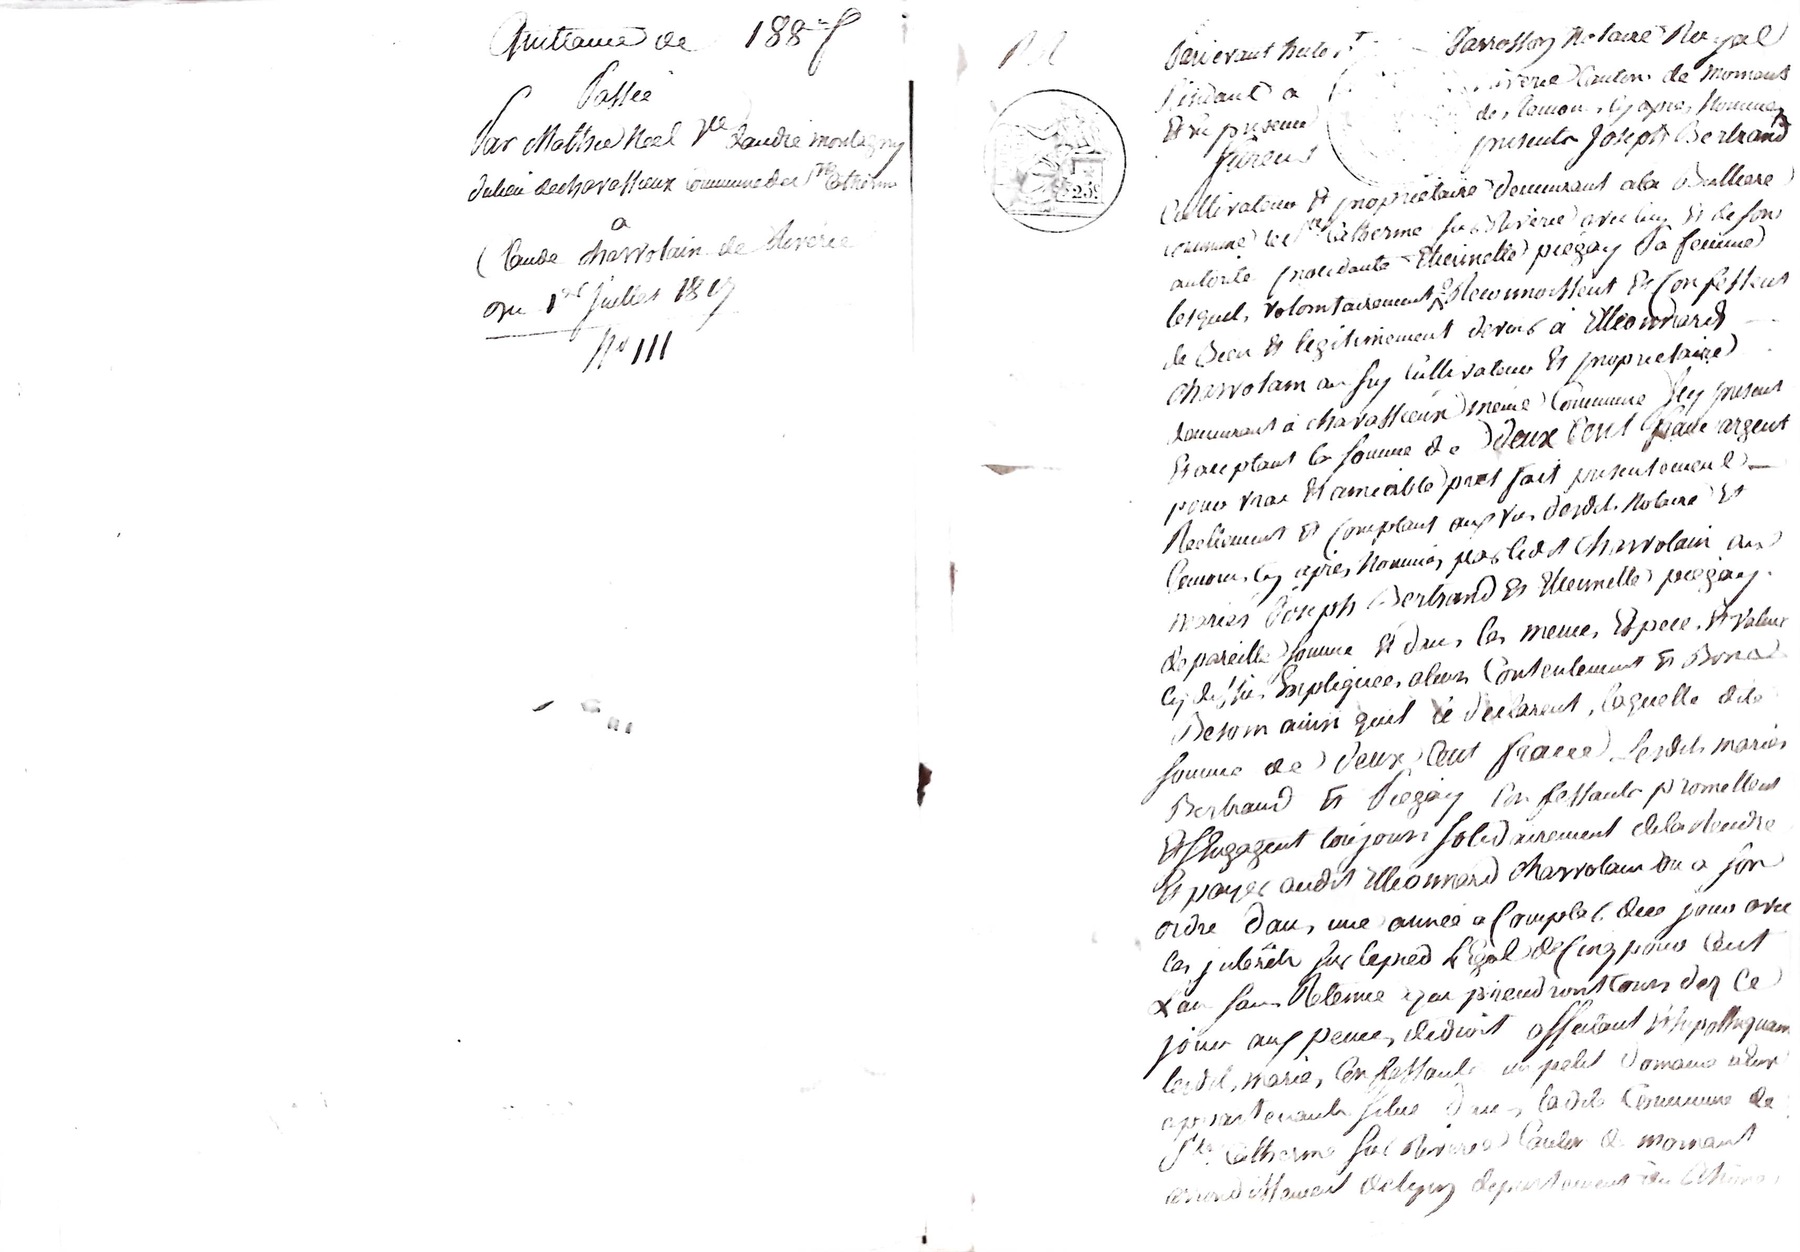 Quittance de 188 f
Passée
Par Mathie Noel Ve Claude montagny
dulieu dechavassieux Commune de Ste Catherine
a
Claude charvolain de Riverie
du 1er juillet 1819
No 111
Pardevant
Notaire Royal
Résidant a
Canton de Mornant
Et en presence
des temoins cy apres Nommes
furent
presents Joseph Bertrand
Cultivateur Et proprietaire demeurant ala
commune de Ste Catherine sur Riverie avec luy Et de son
autorité procedante Etiennette piégay Sa femme
lesquels volontairement Reconnoissent Et Confessent
de Bien Et legitimement devoir à Meonnard
charvolain aussy Cultivateur Et proprietaire
demeurant à chavassieux même Commune icy present
Et acceptant la somme de deux Cent francs argent
pour vrai Et amiable prêt fait presentement
Reellement Et Comptant aux vu desdits Notaire Et
temoins cy après Nommés par ledit Charvolain aux
mariés Joseph Bertrand Et Etiennette piégay
de pareille somme Et dans les memes Espece Et valeur
cy dessus Expliquees aleur Contentement Et
Besoin ainsi quil le declarent, laquelle dite
somme de deux Cent francs lesdits mariés
Bertrand Et Piégay Confessants promettent
Et sEngagent toujours solidairement delaRendre
Et payer audit Meonnard Charvolain ou a son
ordre dans une année a Compter de ce jour avec
les jnterêts sur lepied Légal de Cinq pour Cent
L'an sans Retenue qui prendront Cours des ce
jour aux peines dedroit affectant Et hypothequant
lesdits mariés Confessants un petit Domaine aleur
appartenants situé dans ladite Commune de
Ste Catherine sur Riverie Canton de mornant
arrondissement deLyon departement du Rhône